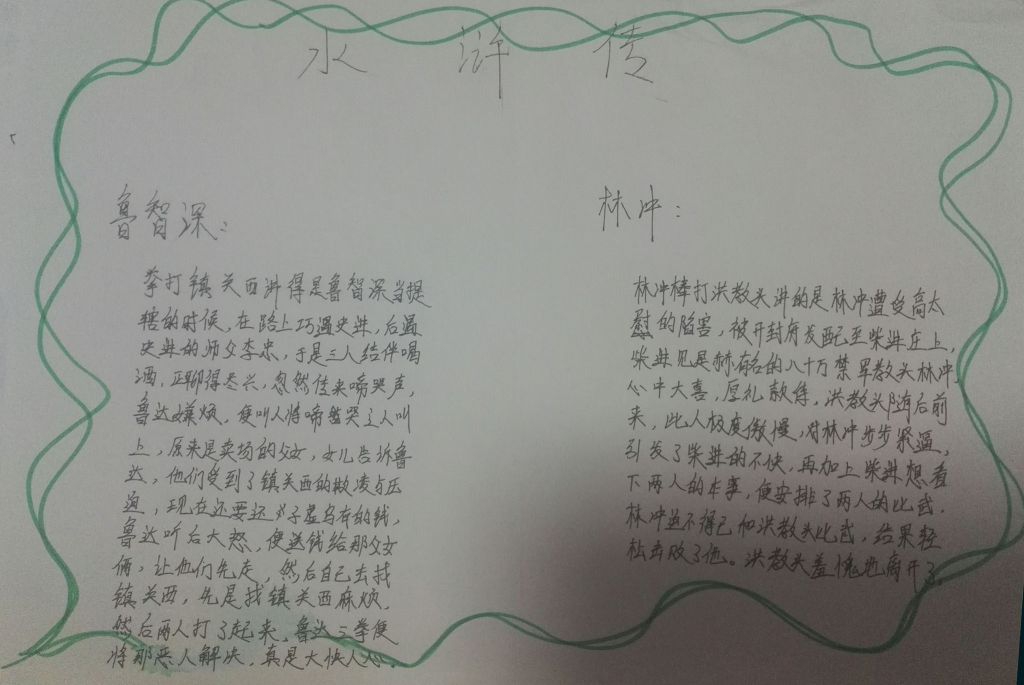 水浒传
鲁智深：
拳打镇关西讲得是鲁智深当提
辖的时候，在路上巧遇史进，后遇
史进的师父李忠，于是三人结伴喝
酒，正聊得尽兴，忽然传来啼哭声，
鲁达嫌烦，便叫人将啼哭之人叫
上，原来是卖场的父女，女儿告诉鲁
达，他们受到了镇关西的欺凌与压
迫，现在还要还子虚乌有的钱，
鲁达听后大怒，便送钱给那父女
俩，让他们先走，然后自己去找
镇关西，先是找镇关西麻烦，
然后两人打了起来，鲁达三拳便
将那恶人解决，真是大快人心。
林冲：
林冲棒打洪教头讲的是林冲遭受高太
慰的陷害，被开封府发配至柴进庄上，
柴进见是赫有名的八十万禁军教头林冲，
心中大喜，厚礼款待，洪教头随后前
来，此人极度傲慢，对林冲步步紧逼，
引发了柴进的不快，再加上柴进想看
下两人的本事，便安排了两人的比武．
林冲迫不得已和洪教头比武，结果轻
松击败了他。洪教头羞愧地离开了．